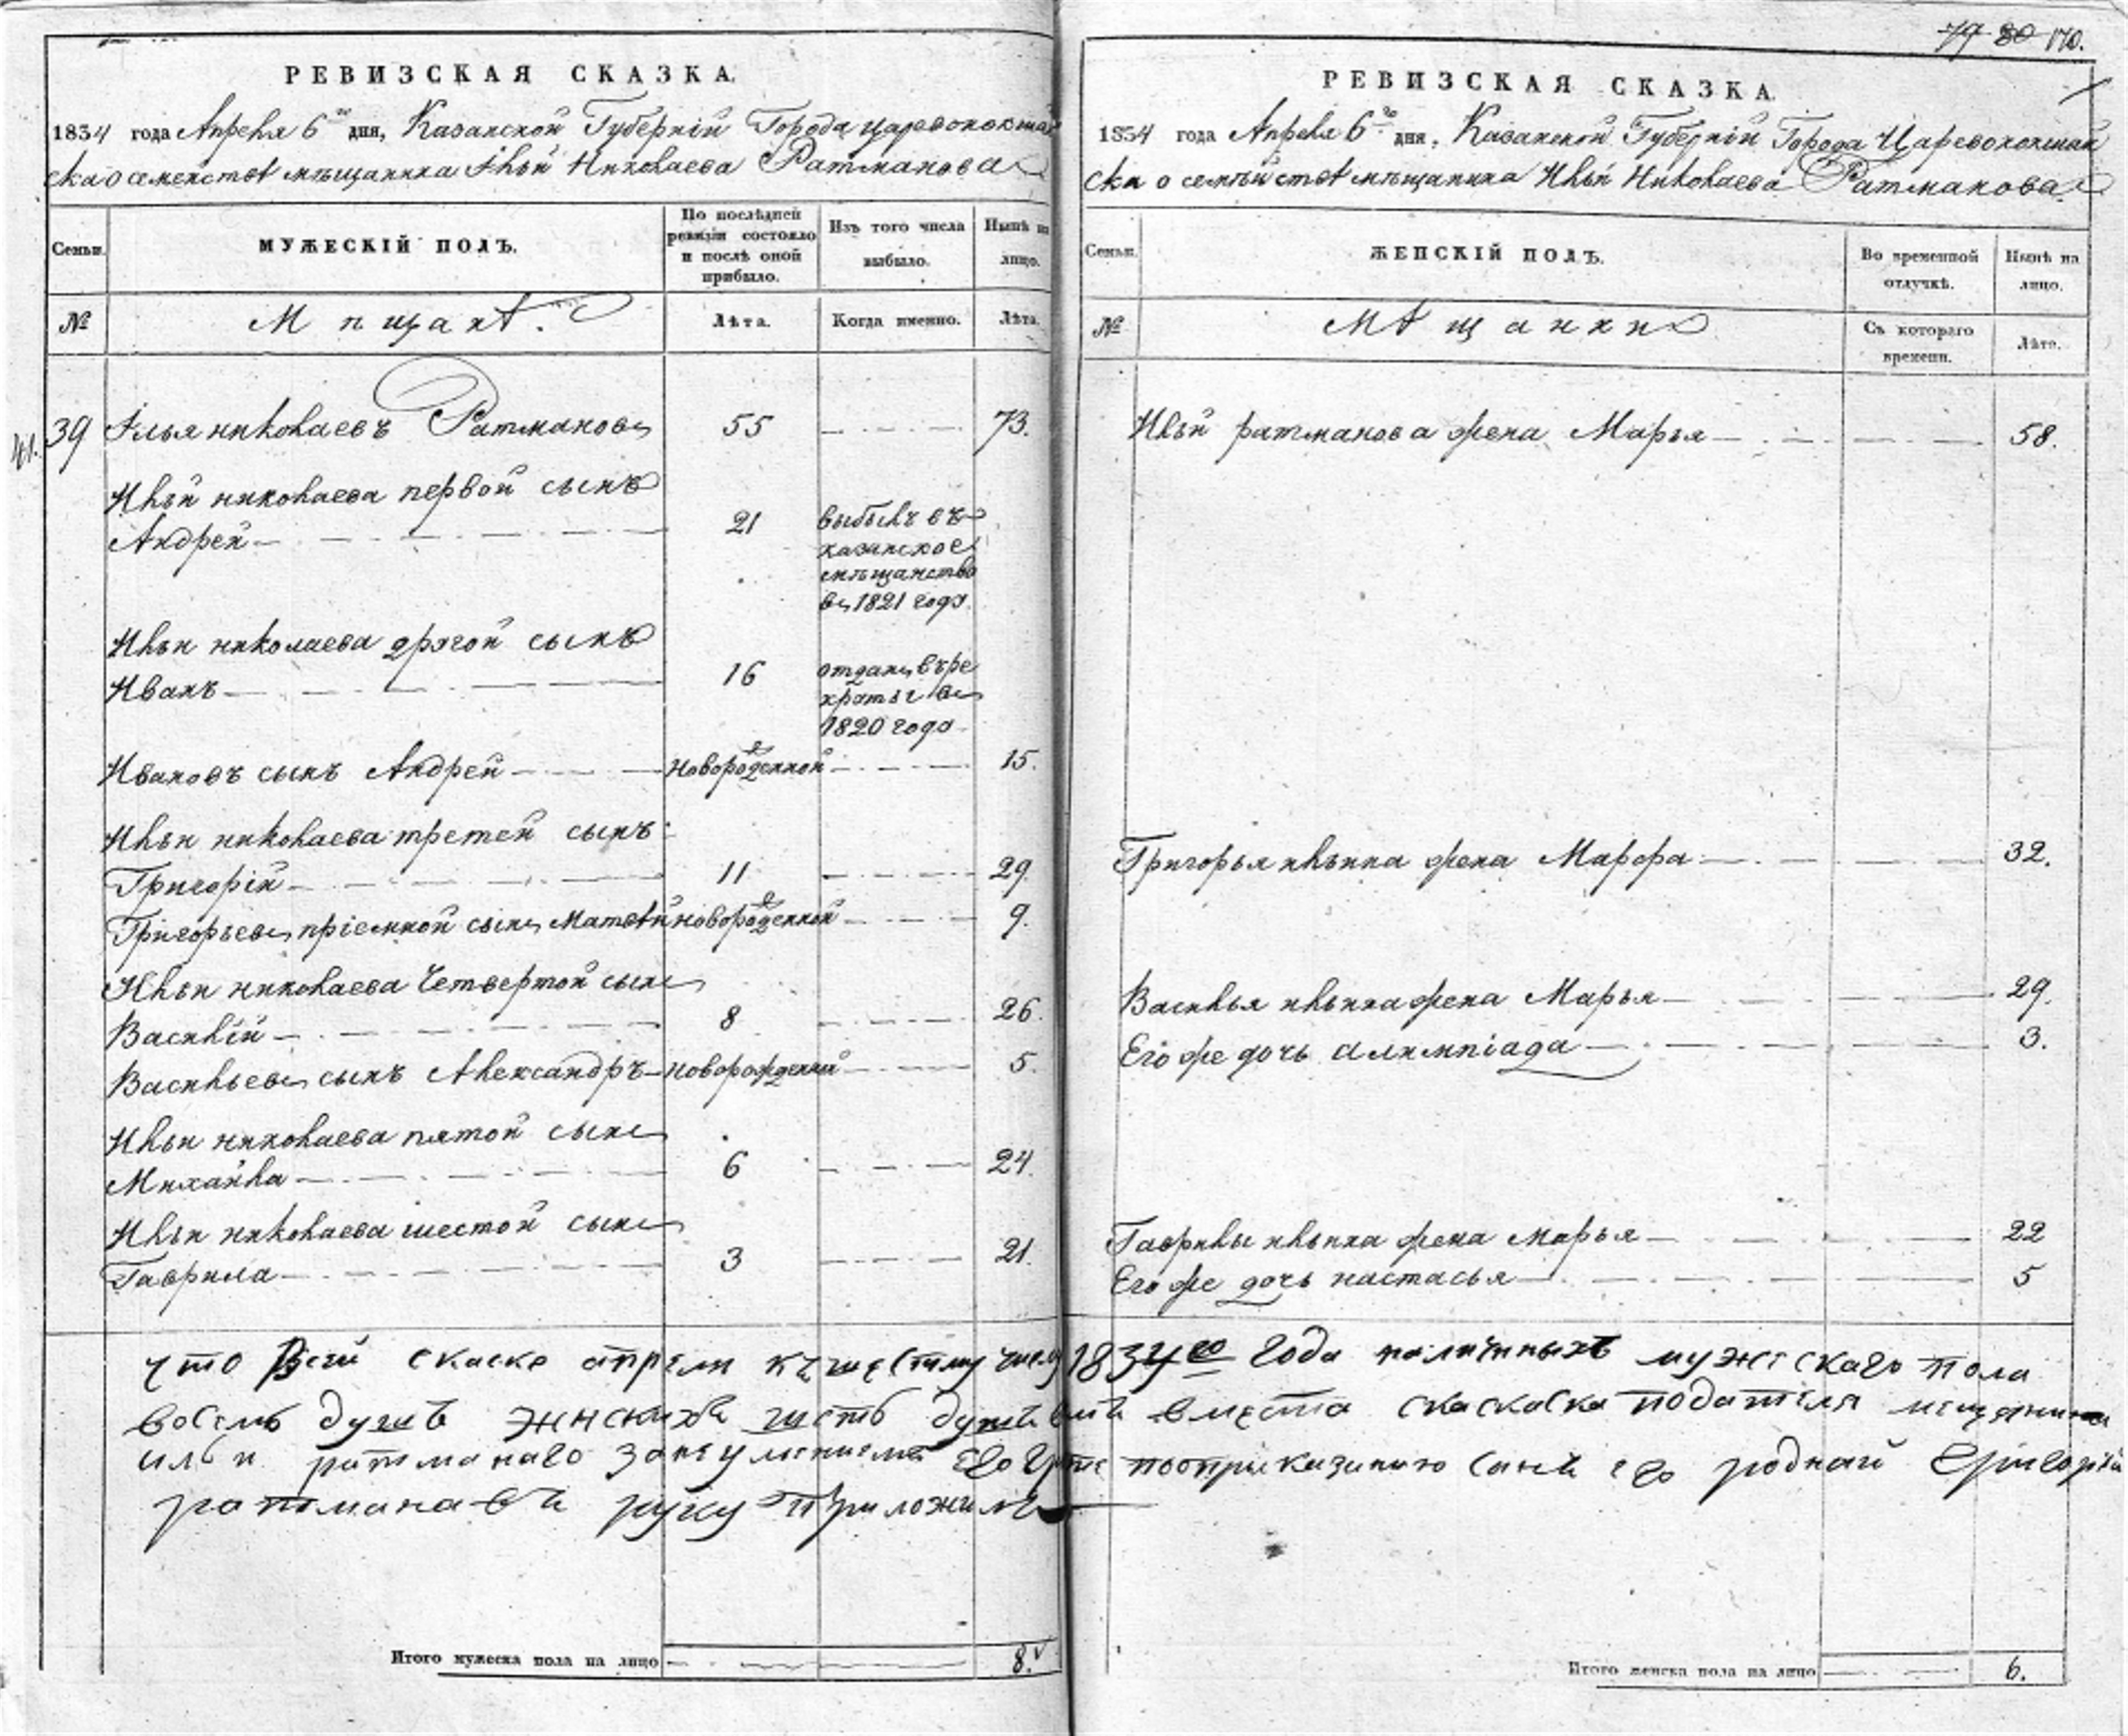 79 80 170.
РЕВИЗСКАЯ СКАЗКА.
1834 года Апреля 6го дня, Казанской Губернiи Города Царевококшай
ска о семействѣ мѣщанина Ильи Николаева Ратманова
Семьи.
МУЖЕСКІЙ ПОЛЪ.
По послѣдней ревизіи состояло и послѣ оной прибыло.
Изъ того числа выбыло.
Нынѣ на лицо.
№
Мѣщанѣ.
Лѣта.
Когда именно.
Лѣта.
41. 39 Илья николаевъ Ратмановъ 55 73.
Ильи николаева первой сынъ
Андрей 21 выбылъ въ
казанское
мѣщанство
въ 1821 году.
Ильи николаева другой сынъ
Иванъ 16 отданъ въ ре
круты въ
1820 году
Ивановъ сынъ Андрей новорожденной 15.
Ильи николаева третей сынъ
Григорій 11 29.
Григорьевъ пріемной сынъ Матвѣй новорожденной 9.
Ильи николаева Четвертой сынъ
Василій 8 26.
Васильевъ сынъ Александръ новорожденной 5.
Ильи николаева пятой сынъ
Михайла 6 24.
Ильи николаева шестой сынъ
Гаврила 3 21.
РЕВИЗСКАЯ СКАЗКА.
1834 года Апреля 6го дня, Казанской Губерніи Города Царевококшай
ска о семѣйствѣ мѣщанина Ильи Николаева Ратманова
Семьи.
ЖЕНСКІЙ ПОЛЪ.
Во временной отлучкѣ.
Нынѣ на лицо.
№
Мѣщанки
Съ котораго времени.
Лѣта.
Ильи ратманова жена Марья 58.
Григорья ильина жена Марфа 32.
Василья ильина жена Марья 29.
Его же дочь алимпіада 3.
Гаврилы ильина жена Марья 22
Его же дочь настасья 5
что всей скаске апреля к шестому числу 1834го года наличныхъ мужескаго пола
восемь душъ женскихъ шесть душъ вместа податѣля мещанина
ильи ратманаго его сынъ его родной Григорій
ратмановъ руку приложилъ
Итого мужеска пола на лицо 8.
Итого женска пола на лицо 6.